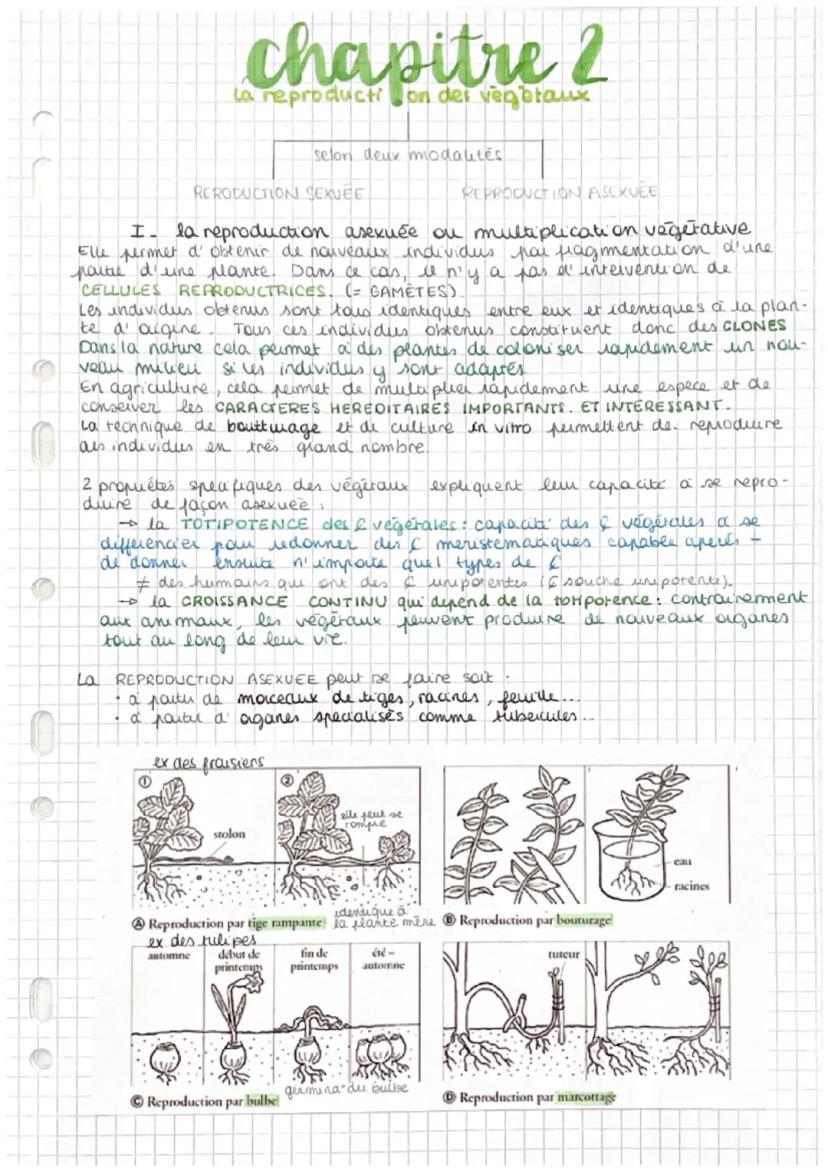 chapitre 2
la reproduction des végétaux
selon deux modalités
RERODUCTION SEXUÉE
REPRODUCTION ASEXUÉE
I- la reproduction asexuée ou multiplication végétative
Elle permet d'obtenir de nouveaux individus par fragmentation d'une
partie d'une plante. Dans ce cas, il n'y a pas d'intervention de
CELLULES REPRODUCTRICES. (= GAMÈTES)
Les individus obtenus sont tous identiques entre eux et identiques à la plan-
te d'origine. Tous ces individus obtenus constituent donc des CLONES
Dans la nature cela permet à des plantes de coloniser rapidement un nou-
veau milieu si les individus y sont adaptés
En agriculture, cela permet de multiplier rapidement une espece et de
conserver les CARACTERES HEREDITAIRES IMPORTANTS. ET INTERESSANT.
La technique de boutturage et de culture in vitro permettent de reproduire
des individus en très grand nombre.
2 propriétés spécifiques des végétaux expliquent leur capacité à se repro-
duire de façon asexuée :
→ la TOTIPOTENCE des C végétales : capacité des C végétales à se
différencier pour redonner des C meristematiques capable apeurs -
de donner ensuite n'importe quel types de C
≠ des humains qui ont des C unipotentes (C souche unipotente).
→ la CROISSANCE CONTINU qui dépend de la totipotence : contrairement
aux animaux, les végétaux peuvent produire de nouveaux organes
tout au long de leur vie.
La REPRODUCTION ASEXUEE peut se faire soit :
• à partir de morceaux de tiges, racines, feuille...
• à partir d'organes specialisés comme tubercules...
ex des fraisiers
①
②
stolon
elle peut se
rompre
eau
racines
Ⓐ Reproduction par tige rampante
identique à
la plante mère
Ⓑ Reproduction par bouturage
ex des tulipes
automne
début de
printemps
fin de
printemps
été –
automne
tuteur
germina° du bulbe
Ⓒ Reproduction par bulbe
Ⓓ Reproduction par marcottage